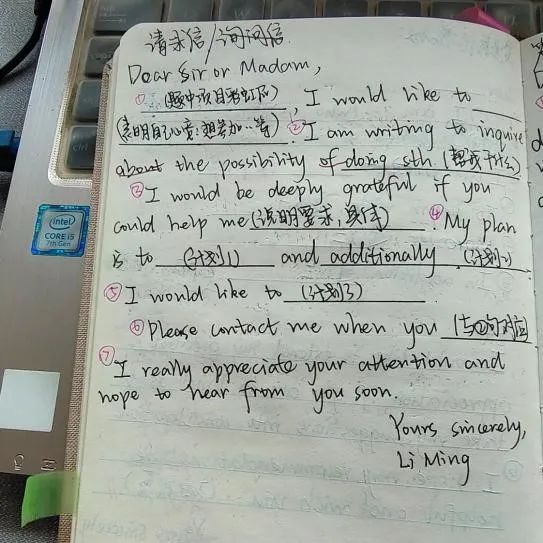 请求信/询问信
Dear Sir or Madam,
① (题中项目考虑后), I would like to
(表明自己心意:想参加…等). ② I am writing to inquire
about the possibility of doing sth (帮我干什么)
③ I would be deeply grateful if you
could help me (说明要求,具体). ④ My plan
is to (计划1) and additionally (计划2)
⑤ I would like to (计划3).
⑥ Please contact me when you
⑦ I really appreciate your attention and
hope to hear from you soon.
Yours sincerely,
Li Ming
intel
CORE i5
7th Gen
ctrl